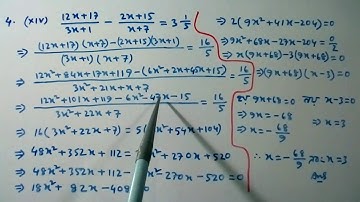 4. (xiv) (12x+17)/(3x+1) − (2x+15)/(x+7) = 3 1/5
⇒ ((12x+17)(x+7) − (2x+15)(3x+1))/((3x+1)(x+7)) = 16/5
⇒ (12x²+84x+17x+119 − (6x²+2x+45x+15))/(3x²+21x+x+7) = 16/5
⇒ (12x²+101x+119 − 6x² − 47x − 15)/(3x²+22x+7) = 16/5
⇒ 16(3x²+22x+7) = 5(6x²+54x+104)
⇒ 48x²+352x+112 = 30x²+270x+520
⇒ 48x²+352x+112 − 30x² − 270x − 520 = 0
⇒ 18x² + 82x − 408 = 0
⇒ 2(9x²+41x−204) = 0
⇒ 9x²+68x−27x−204 = 0/2
⇒ x(9x+68) −3(9x+68) = 0
⇒ (9x+68)(x−3) = 0
9x+68 = 0 x−3 = 0
⇒ 9x = −68 ⇒ x = 3
⇒ x = −68/9
∴ x = −68/9 x = 3
Ans